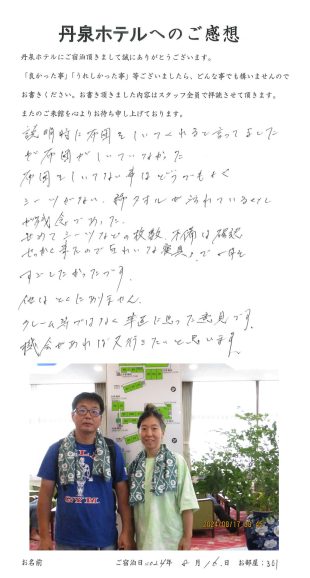 丹泉ホテルへのご感想
丹泉ホテルにご宿泊頂きまして誠にありがとうございます。
「良かった事」「うれしかった事」等ございましたら、どんな事でも構いませんので
お書きください。お書き頂きました内容はスタッフ全員で拝読させて頂きます。
またのご来館を心よりお待ち申し上げております。
説明時に布団をしいてくれると言ってました
が布団がしいていなかった
布団をしいてない事はどうでもよく
シーツがない、 タオルが汚れている
が残念であった。
せめてシーツなどの枚数、不備は確認
せっかく来たので
すごしたかったです。
他はとくにありません。
クレーム等ではなく率直に思った意見です。
機会があれば又行きたいと思います。
GYM
2024/08/17
お名前 ご宿泊日 2024年 8月 16日 お部屋: 301